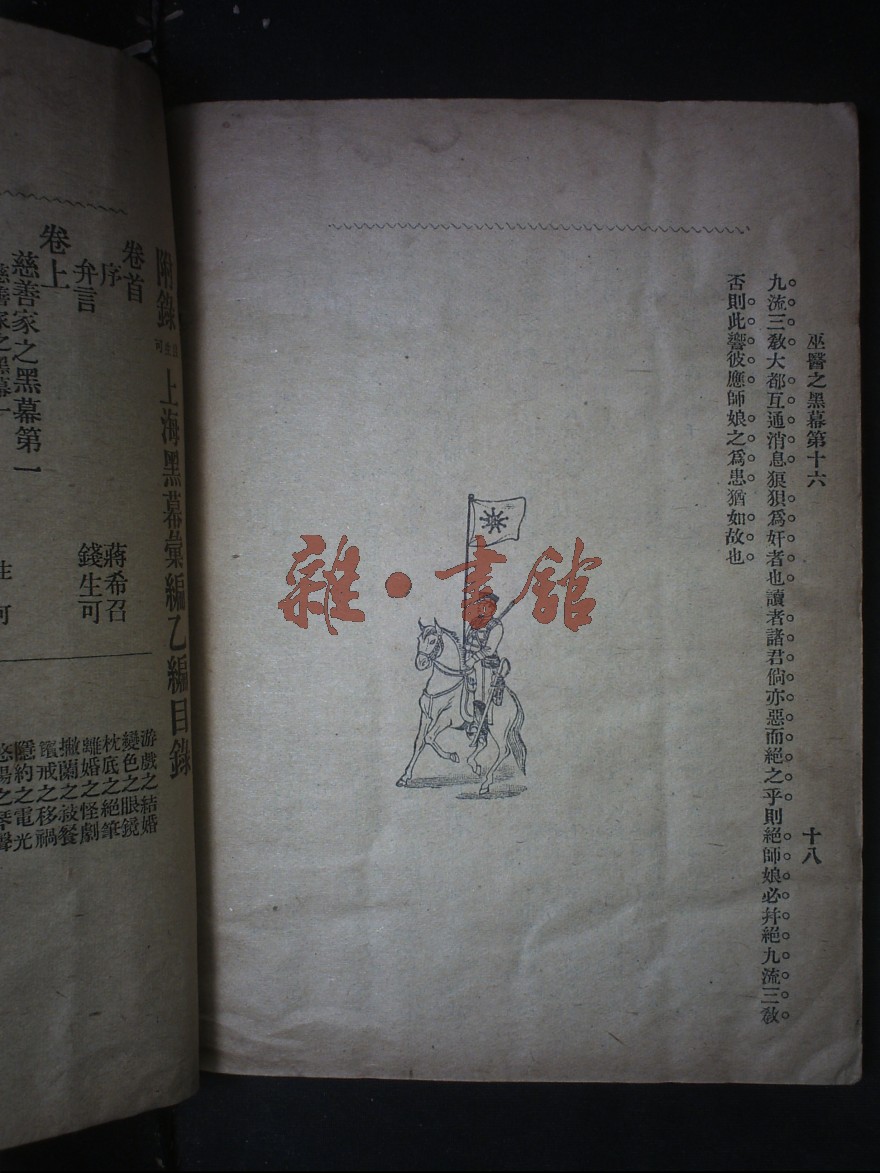 巫醫之黑幕第十六
十八
九流三敎大都互通消息狼狽爲奸者也讀者諸君倘亦惡而絕之乎則絕師娘必幷絕九流三敎
否則此響彼應師娘之爲患猶如故也
雜·書舘
附錄
上海黑幕彙編乙編目錄
卷首
序
蔣希召
弁言
錢生可
卷上
慈善家之黑幕第一
慈善家之黑幕一
游戲之結婚
變色之眼鏡
枕底之絕筆
離婚之怪劇
撇蘭之敍餐
隱約之電光